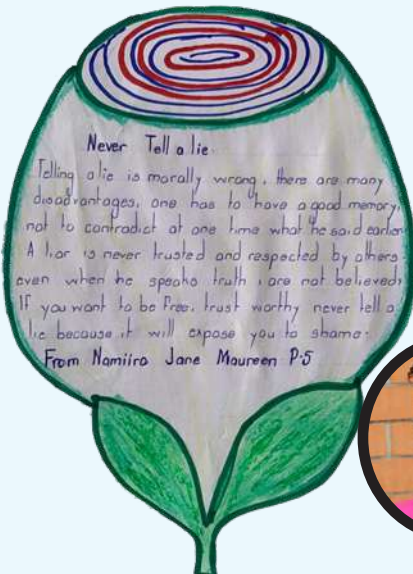 Never Tell a lie.
Telling a lie is morally wrong, there are many
disadvantages, one has to have a good memory,
not to contradict at one time what he said earlier
A liar is never trusted and respected by others
even when he speaks truth, are not believed,
If you want to be free, trust worthy never tell a
lie because it will expose you to shame.
From Namiiro Jane Maureen P.5